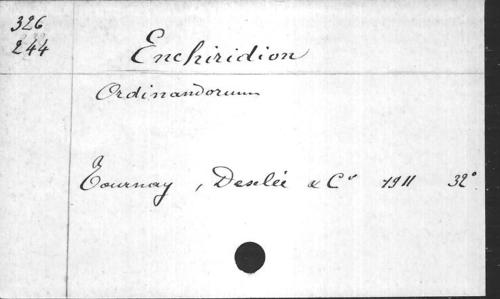 326
244
Enchiridion
Ordinandorum
Tournay, Desclée & Cº 1911 32º